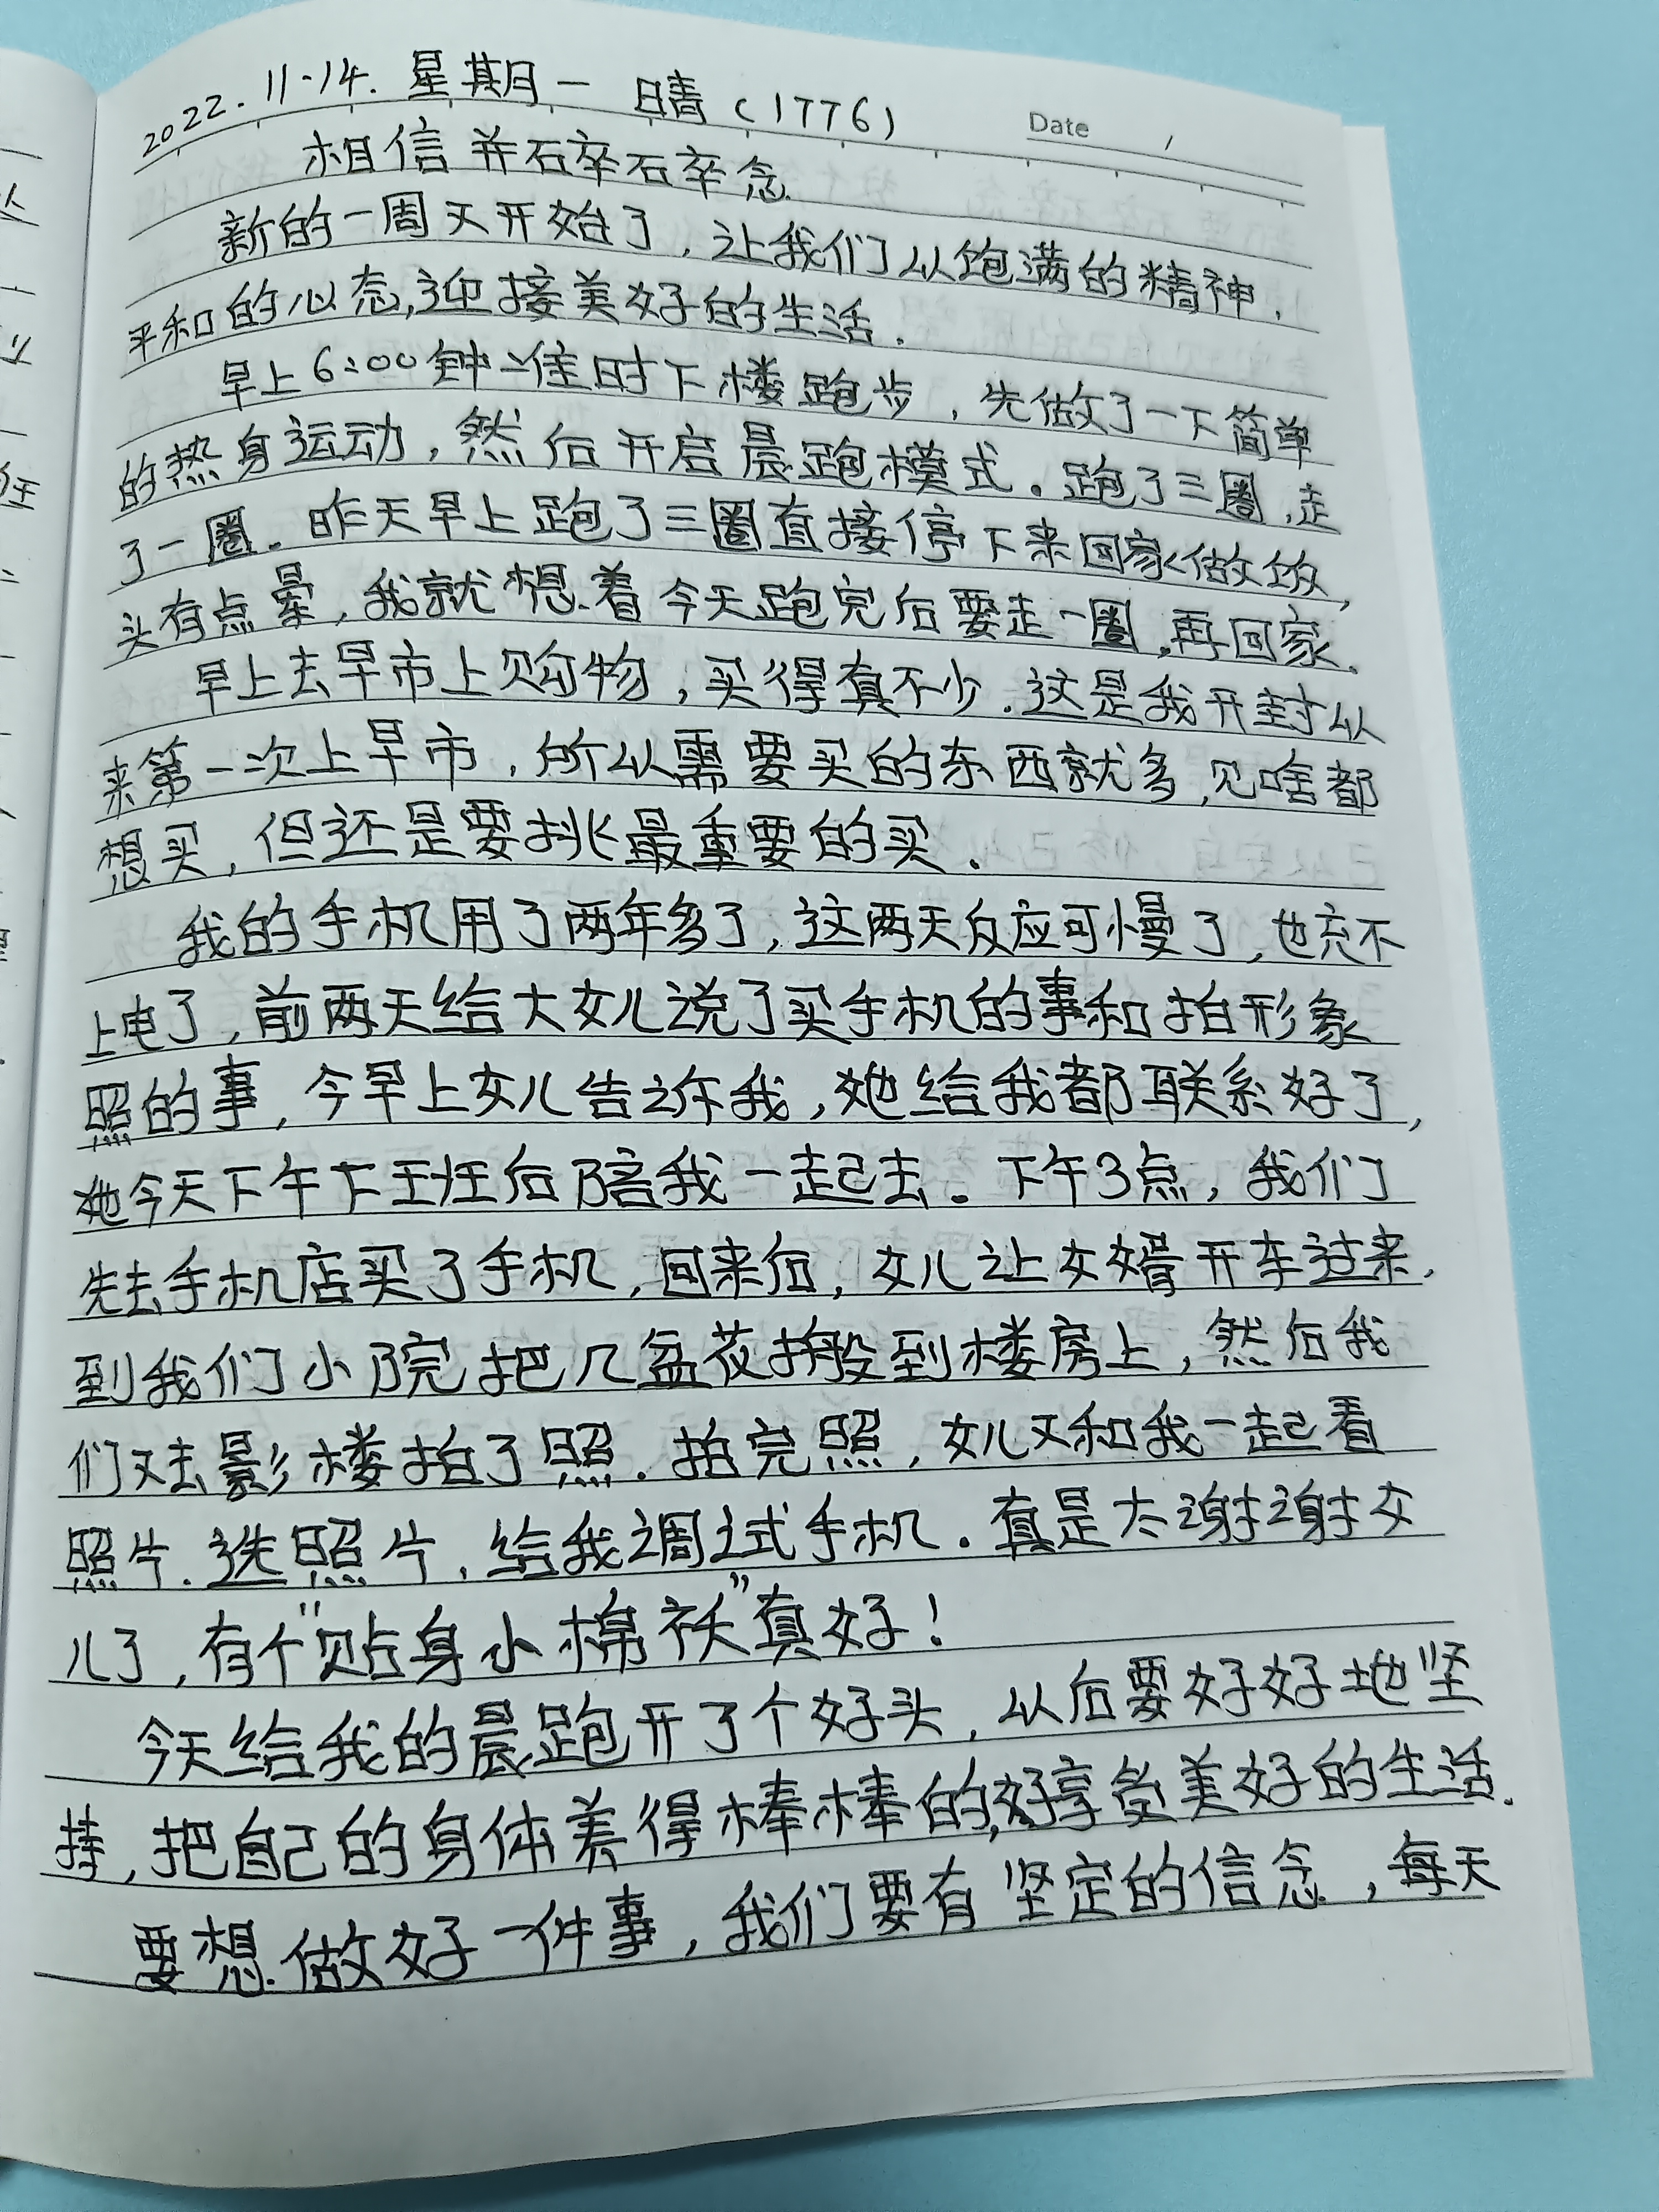 2022.11.14. 星期一 晴(1776)
Date /
相信并碎碎念.
新的一周又开始了,让我们以饱满的精神,
平和的心态,迎接美好的生活.
早上6:00钟准时下楼跑步,先做了一下简单
的热身运动,然后开启晨跑模式。跑了三圈,走
了一圈。昨天早上跑了三圈直接停下来回家做饭,
头有点晕,我就想着今天跑完后要走一圈,再回家.
早上去早市上购物,买得真不少.这是我开封以
来第一次上早市,所以需要买的东西就多,见啥都
想买,但还是要挑最重要的买.
我的手机用了两年多了,这两天反应可慢了,也充不
上电了,前两天给大女儿说了买手机的事和拍形象
照的事,今早上女儿告诉我,她给我都联系好了,
她今天下午下班后陪我一起去。下午3点,我们
先去手机店买了手机,回来后,女儿让女婿开车过来,
到我们小院把几盆花搬到楼房上,然后我
们又去影楼拍了照.拍完照,女儿又和我一起看
照片.选照片,给我调试手机.真是太谢谢女
儿了,有个"贴身小棉袄"真好!
今天给我的晨跑开了个好头,以后要好好地坚
持,把自己的身体养得棒棒的,好享受美好的生活.
要想做好一件事,我们要有坚定的信念,每天